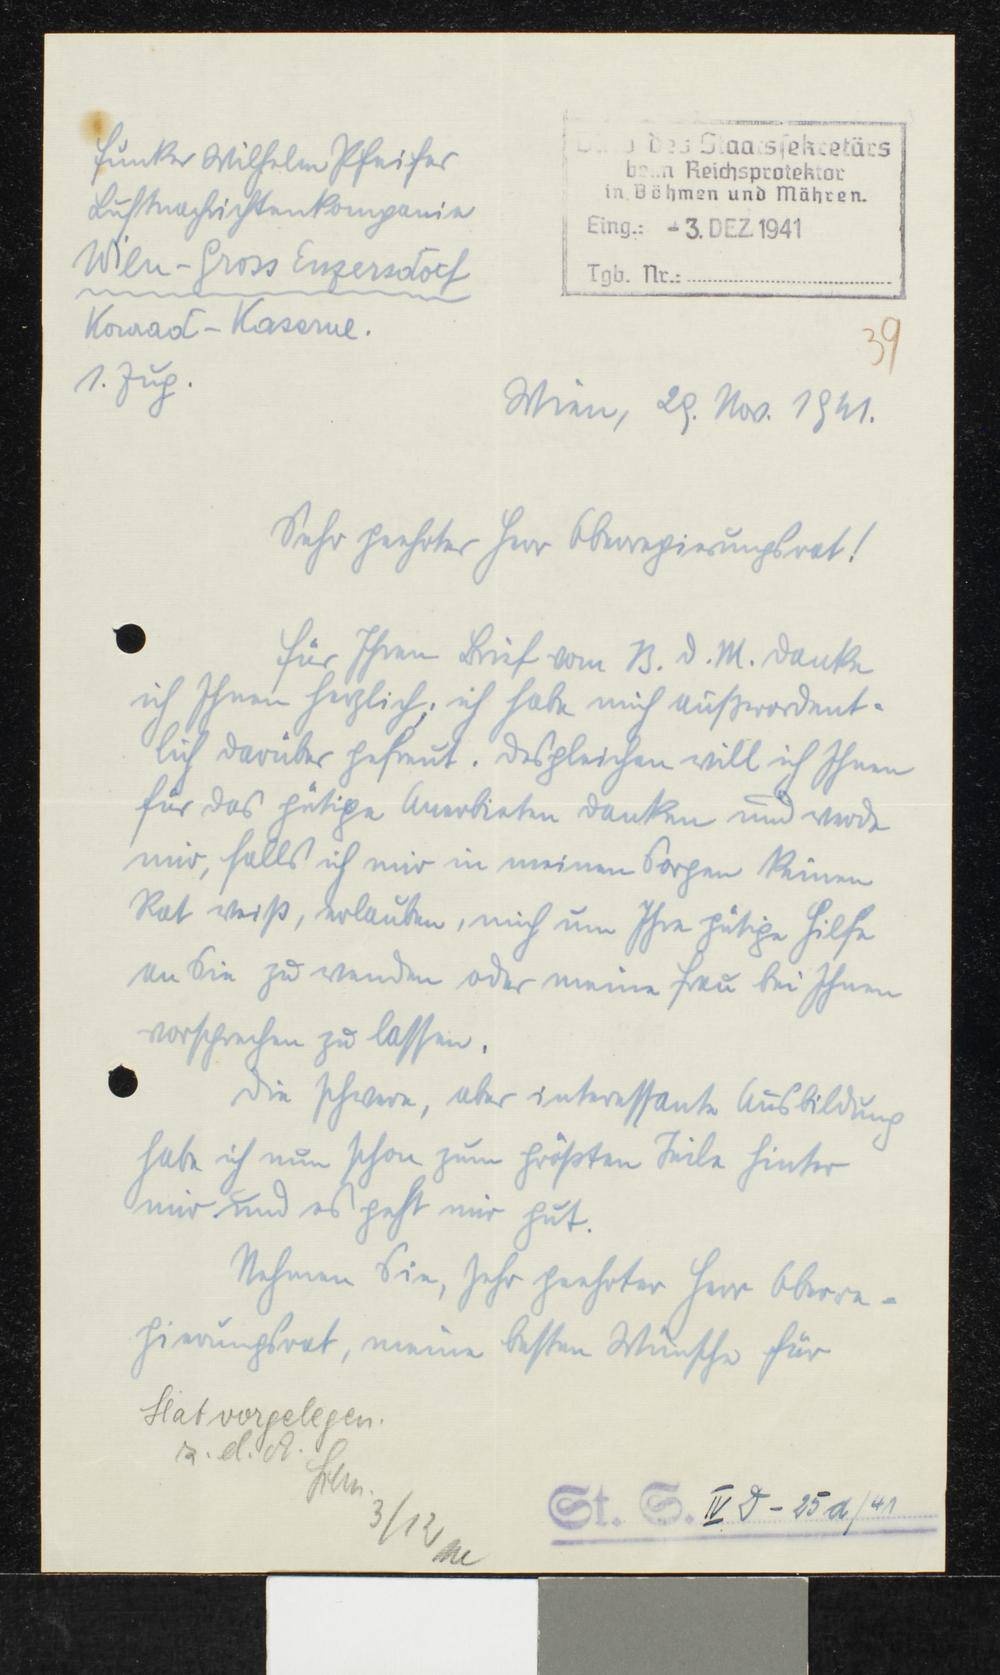 Funker Wilhelm Pfeifer
Luftnachrichtenkompanie
Wien - Gross Enzersdorf
Konrad - Kaserne.
1. Zug.
Büro des Staatssekretärs
beim Reichsprotektor
in Böhmen und Mähren.
Eing.: - 3. DEZ. 1941
Tgb. Nr.:
39
Wien, 29. Nov. 1941.
Sehr geehrter Herr Oberregierungsrat!
Für Ihren Brief vom 13. d. M. danke
ich Ihnen herzlich; ich habe mich außerordent-
lich darüber gefreut. Desgleichen will ich Ihnen
für das gütige Anerbieten danken und werde
mir, falls ich mir in meinen Sorgen keinen
Rat weiß, erlauben, mich um Ihre gütige Hilfe
an Sie zu wenden oder meine Frau bei Ihnen
vorsprechen zu lassen.
Die schwere, aber interessante Ausbildung
habe ich nun schon zum größten Teile hinter
mir und es geht mir gut.
Nehmen Sie, sehr geehrter Herr Oberre-
gierungsrat, meine besten Wünsche für
Hat vorgelegen.
z. d. A.
3/12
St. S. IV D - 25 d/41